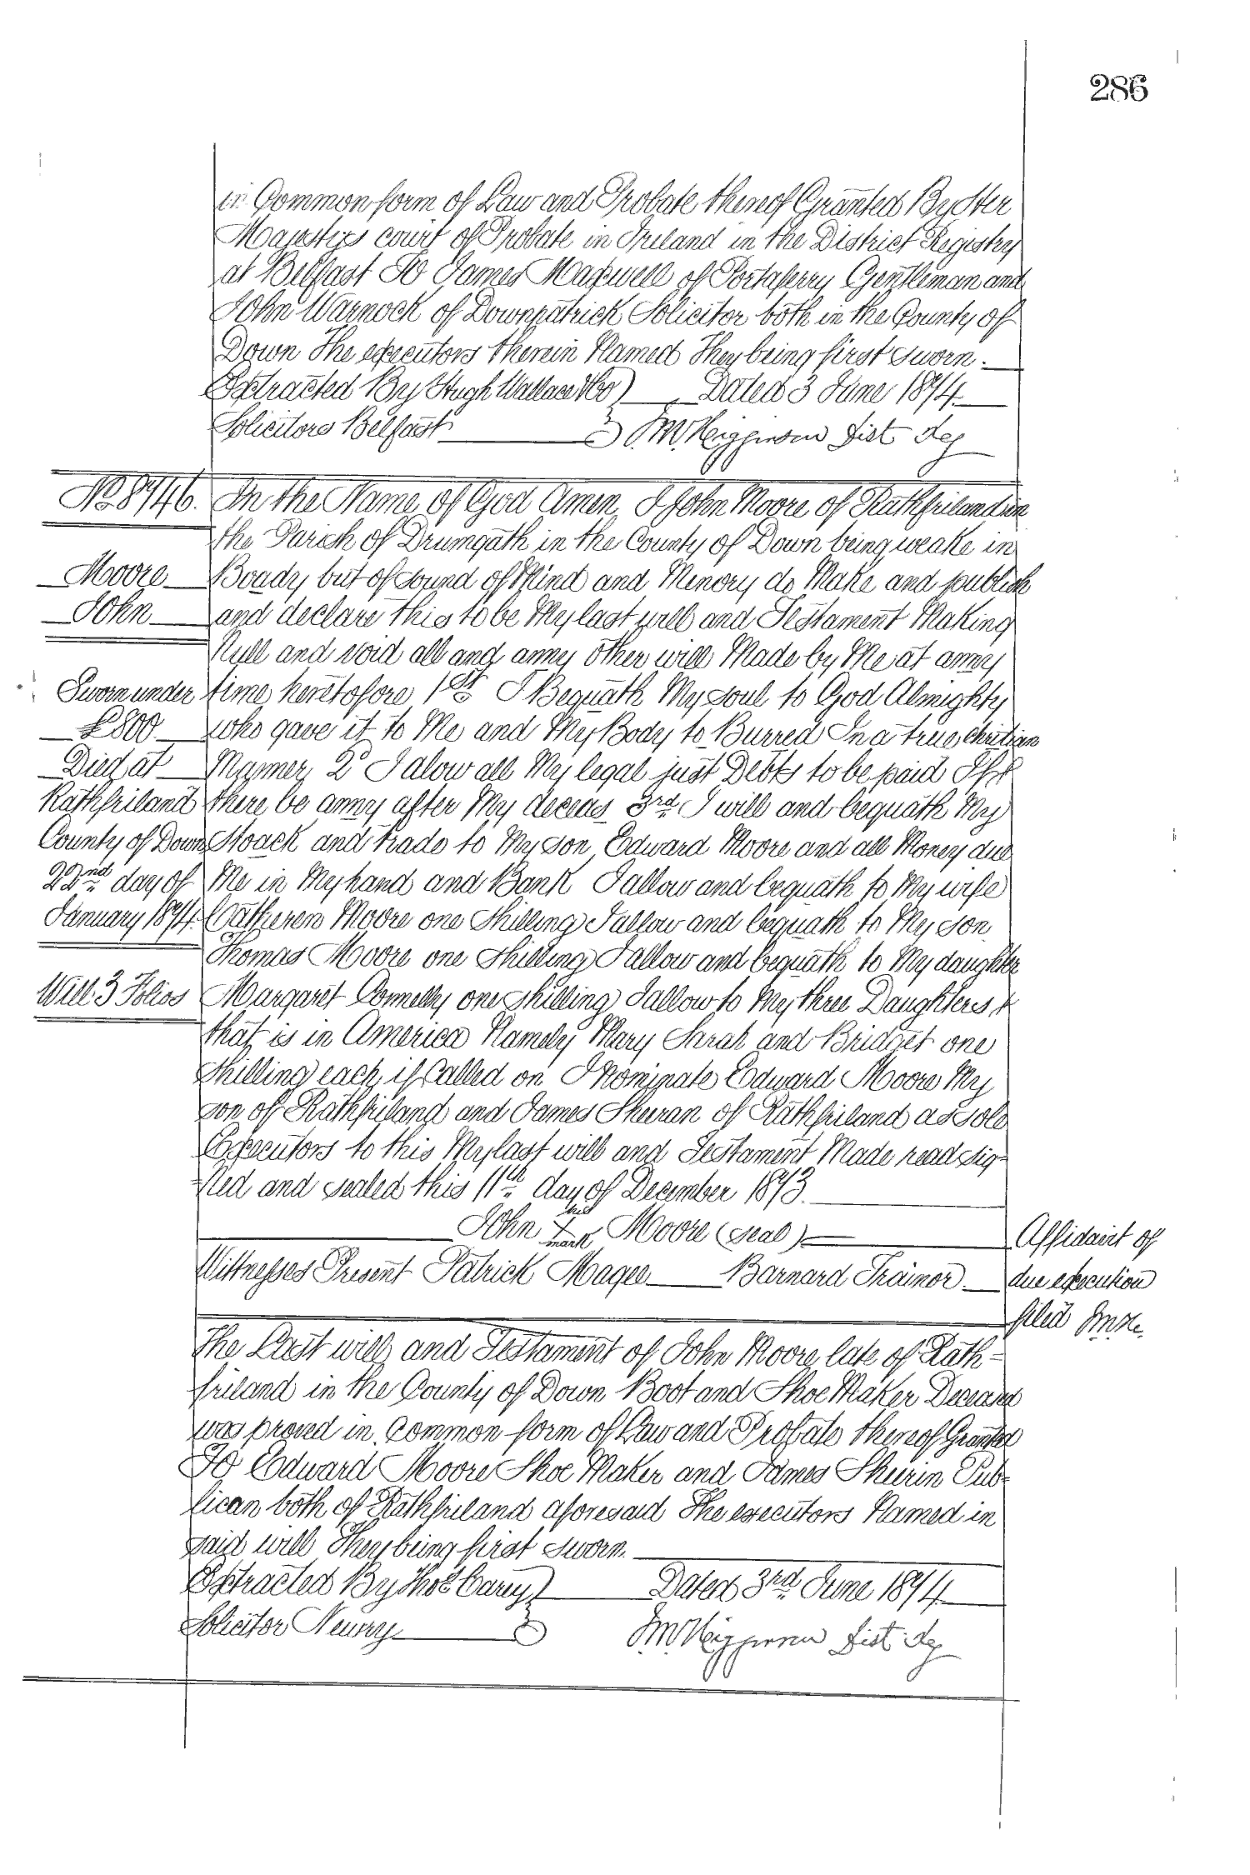 286
in Common form of Law and Probate thereof Granted By Her
Majestys court of Probate in Ireland in the District Registry
at Belfast To James Maxwell of Portaferry Gentleman and
John Warnock of Downpatrick Solicitor both in the County of
Down The executors therein Named They being first sworn.
Extracted By Hugh Wallace & Co } Dated 3 June 1874
Solicitors Belfast } Higginson Dist Reg
No 8746.
Moore
John
Sworn under
£800
Died at
Rathfriland
County of Down
22nd day of
January 1874.
Will 3 Folios
In the Name of God Amen I John Moore of Rathfriland in
the Parish of Drumgath in the County of Down being weake in
Boady but of sound of Mind and Memory do Make and publish
and declare this to be My last will and Testament Making
Null and void all and anny other will Made by Me at anny
time heretofore 1st I Bequath My soul to God Almighty
who gave it to Me and My Body to Burred In a true chritian
Manner 2d I alow all My legal just Debts to be paid If
there be anny after My deceas 3rd I will and bequath My
Stoack and trade to My son Edward Moore and all Money due
Me in My hand and Bank I allow and bequath to My wife
Catheren Moore one shilling I allow and bequath to My son
Thomas Moore one shilling I allow and bequath to My daughter
Margaret Connelly one shilling I allow to My three Daughters
that is in America Namely Mary Sarah and Bridget one
shilling each if Called on I Nominate Edward Moore My
son of Rathfriland and James Sheran of Rathfriland as sole
Executors to this My last will and Testament Made read sig-
-ned and sealed this 11th day of December 1873.
John his X mark Moore (seal)
Witnesses Present Patrick Magee Barnard Trainor
Affidavit of
due execution
filed
The Last will and Testament of John Moore late of Rath-
friland in the County of Down Boot and Shoe Maker Deceased
was proved in Common form of Law and Probate thereof Granted
To Edward Moore Shoe Maker and James Sheerin Pub-
lican both of Rathfriland aforesaid The executors Named in
said will They being first sworn.
Extracted By Thos Carey } Dated 3rd June 1874
Solicitor Newry } Higginson Dist Reg